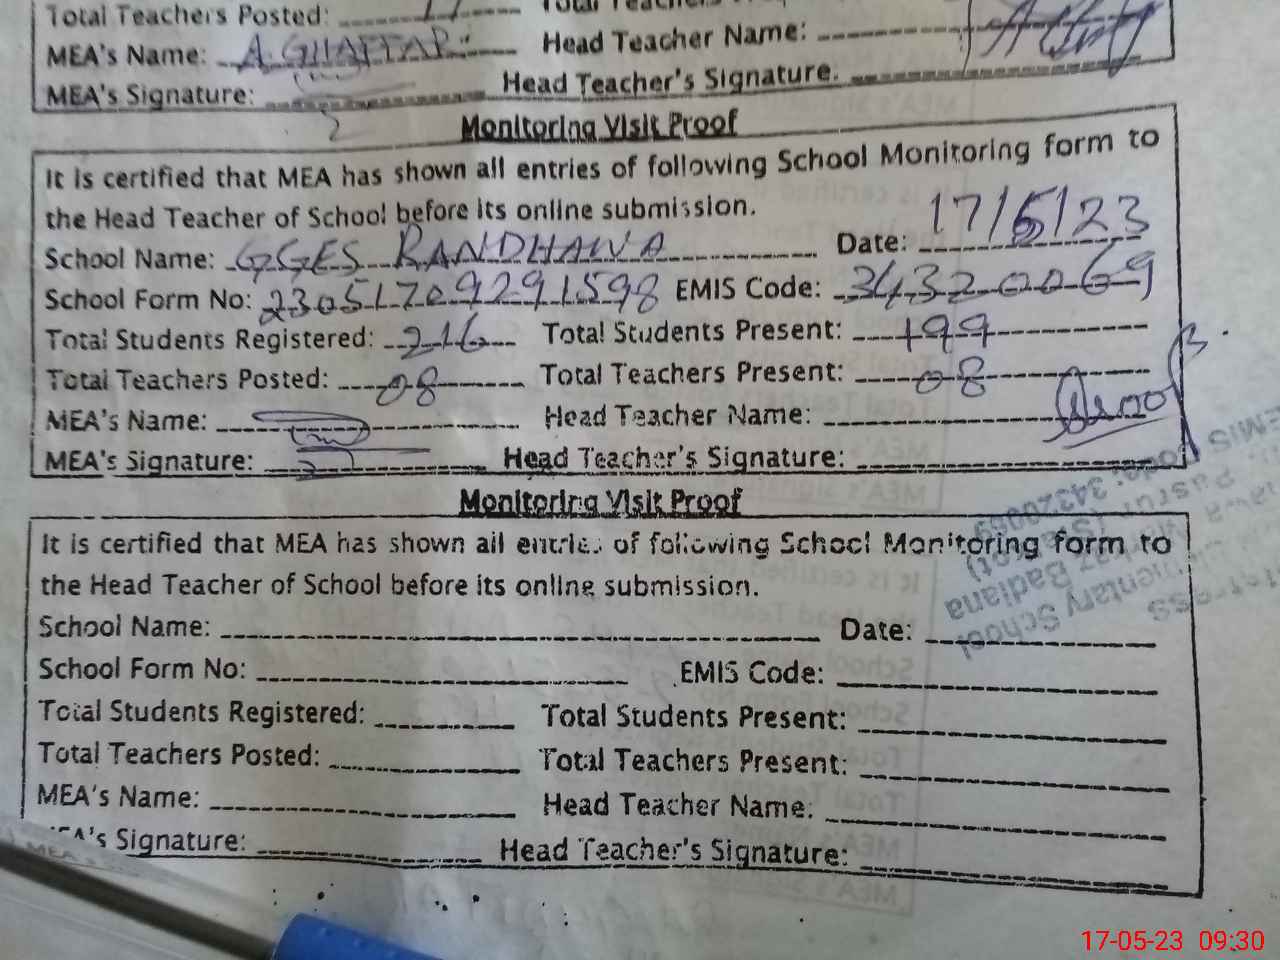 Total Teachers Posted:
MEA's Name: A.GHAFFAR Head Teacher Name:
MEA's Signature: Head Teacher's Signature.
Monitoring Visit Proof
It is certified that MEA has shown all entries of following School Monitoring form to
the Head Teacher of School before its online submission.
School Name: GGES RANDHAWA Date: 17/5/23
School Form No: 23051709291598 EMIS Code: 34320069
Total Students Registered: 216 Total Students Present: 199
Total Teachers Posted: 08 Total Teachers Present: 08
MEA's Name: Head Teacher Name:
MEA's Signature: Head Teacher's Signature:
Monitoring Visit Proof
It is certified that MEA has shown all entries of following School Monitoring form to
the Head Teacher of School before its online submission.
School Name: Date:
School Form No: EMIS Code:
Total Students Registered: Total Students Present:
Total Teachers Posted: Total Teachers Present:
MEA's Name: Head Teacher Name:
Signature: Head Teacher's Signature:
17-05-23 09:30